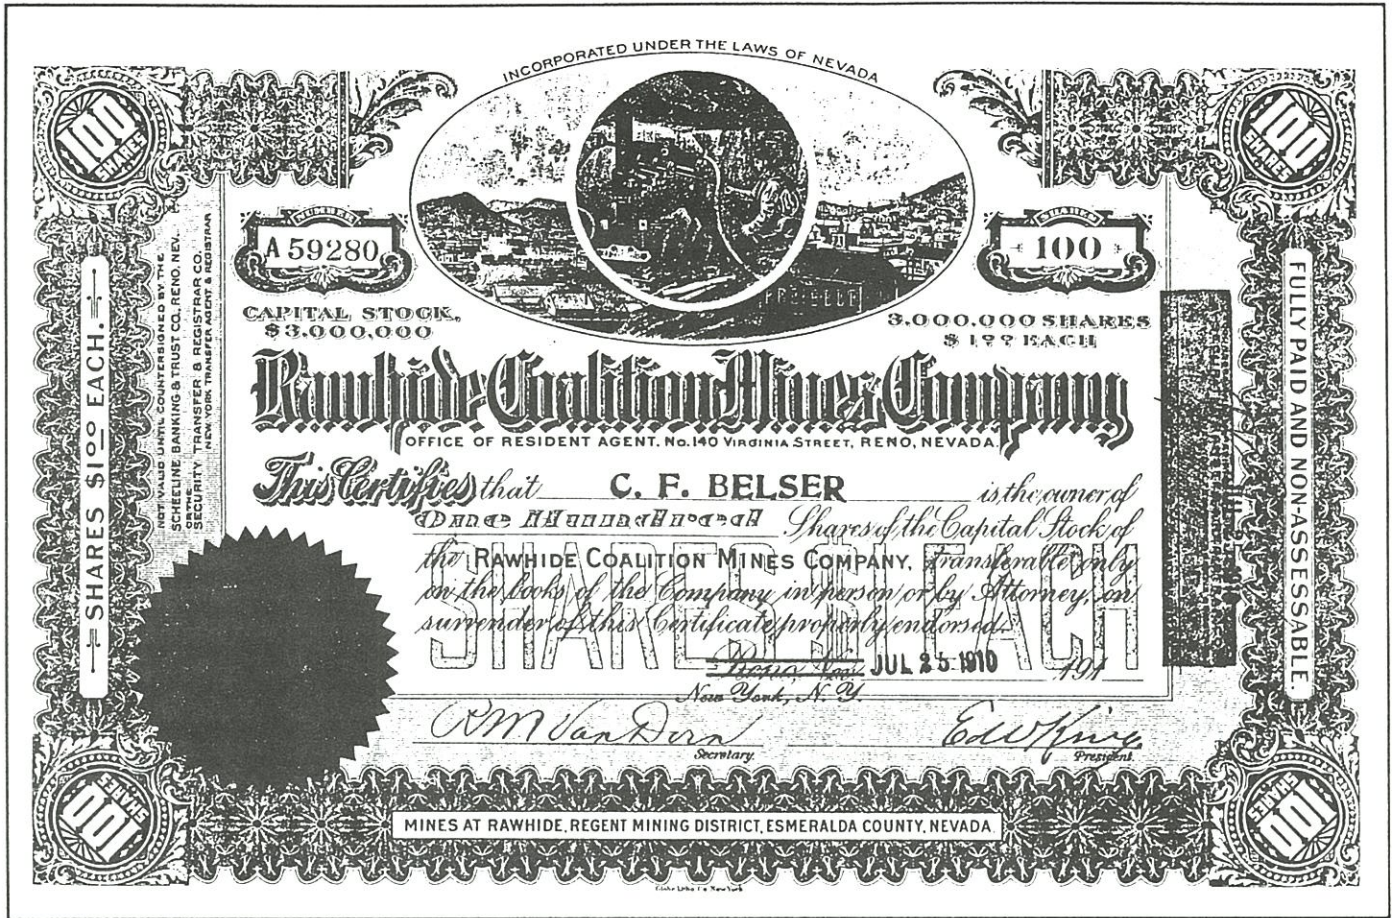 INCORPORATED UNDER THE LAWS OF NEVADA
100 SHARES
100 SHARES
NUMBER
A 59280
SHARES
100
PROSPECT
CAPITAL STOCK,
$3,000,000
3,000,000 SHARES
$1 00 EACH
Rawhide Coalition Mines Company
OFFICE OF RESIDENT AGENT. No. 140 VIRGINIA STREET, RENO, NEVADA.
This Certifies that C. F. BELSER is the owner of
One Hundred Shares of the Capital Stock of
the RAWHIDE COALITION MINES COMPANY, transferable only
on the books of the Company in person or by Attorney, on
surrender of this Certificate properly endorsed.
SHARES $1 EACH
Reno, Nev. JUL 25 1910 191
New York, N.Y.
RM Van Dorn
Secretary.
Ed W King
President.
SHARES $1 00 EACH.
NOT VALID UNTIL COUNTERSIGNED BY THE
SCHEELINE BANKING & TRUST CO. RENO, NEV.
OR THE
SECURITY TRANSFER & REGISTRAR CO.
NEW YORK TRANSFER AGENT & REGISTRAR
FULLY PAID AND NON-ASSESSABLE.
100 SHARES
MINES AT RAWHIDE, REGENT MINING DISTRICT, ESMERALDA COUNTY, NEVADA.
100 SHARES
Globe Litho Co New York